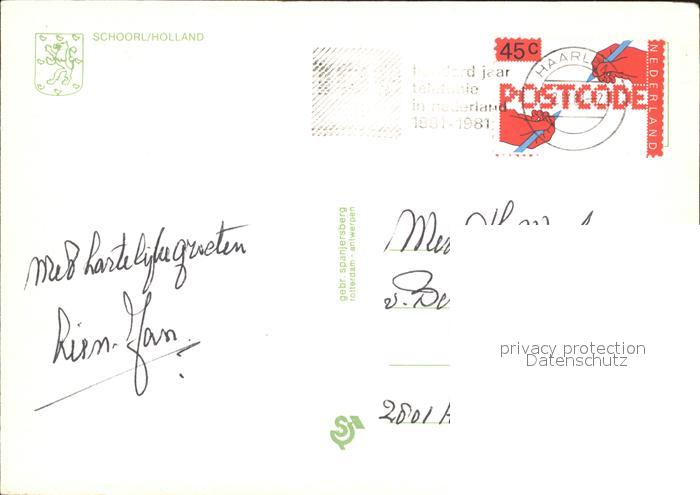 SCHOORL/HOLLAND
45c
NEDERLAND
POSTCODE
HAARL
honderd jaar
telefonie
in nederland
1881-1981
gebr. spanjersberg
rotterdam - antwerpen
met hartelijke groeten
Rien. Jan.
Mev
v.
2801
privacy protection
Datenschutz